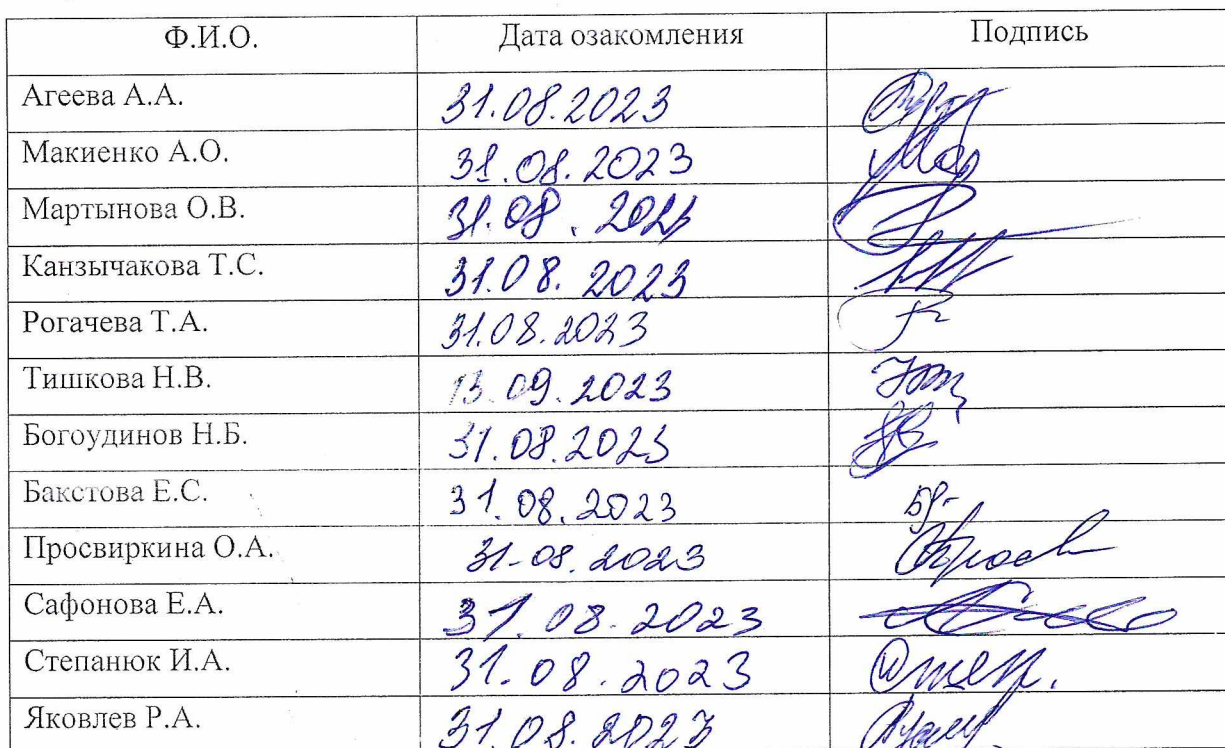 Ф.И.О. Дата озакомления Подпись
Агеева А.А. 31.08.2023
Макиенко А.О. 31.08.2023
Мартынова О.В. 31.08.
Канзычакова Т.С. 31.08.2023
Рогачева Т.А. 31.08.2023
Тишкова Н.В. 13.09.2023
Богоудинов Н.Б. 31.08.2023
Бакстова Е.С. 31.08.2023
Просвиркина О.А. 31-08.2023
Сафонова Е.А. 31.08.2023
Степанюк И.А. 31.08.2023
Яковлев Р.А. 31.08.2023